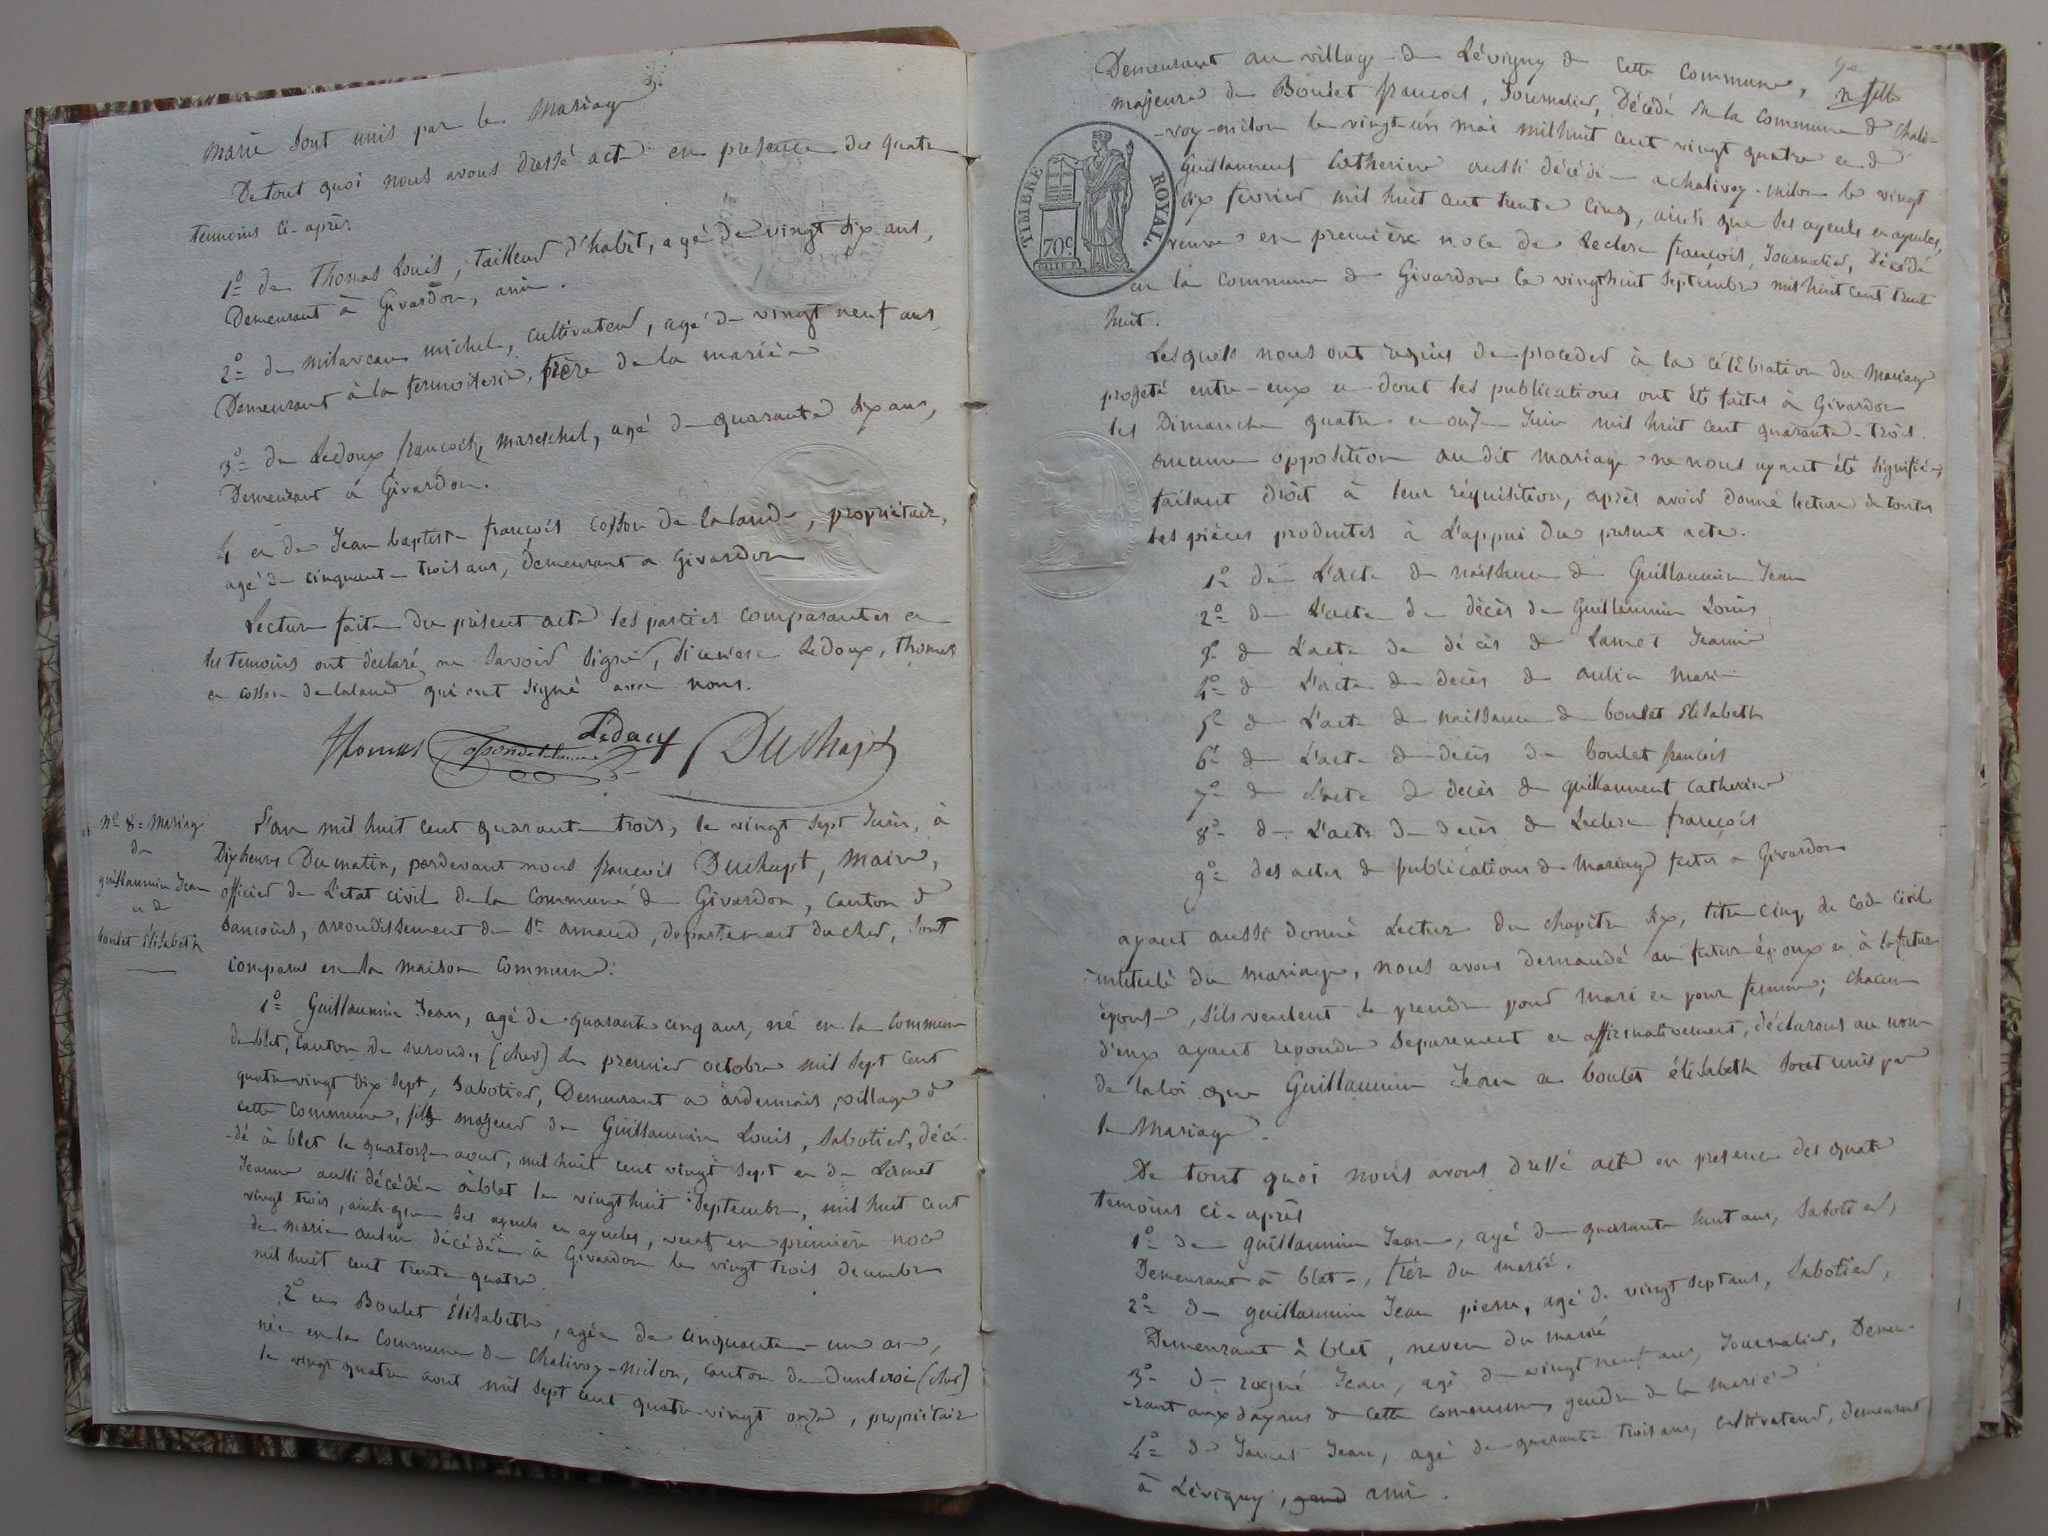 marié sont unis par le Mariage
De tout quoi nous avons dressé acte en presence des quatre
temoins ci-après.
1º de Thomas Louis, tailleur d'habit, agé de vingt six ans,
Demeurant à Givardon, ami.
2º de milaveau michel, cultivateur, agé de vingt neuf ans,
Demeurant à la, frère de la mariée
3º de Ledoux françois, mareschal, agé de quarante six ans,
Demeurant à Givardon.
4 et de Jean baptiste françois cosson de lalande, propriétaire,
agé de cinquante trois ans, demeurant a Givardon
Lecture faite du présent acte les parties comparantes et
les temoins ont déclaré ne savoir signé, si ce n'est Ledoux, thomas
et cosson de lalande qui ont signé avec nous.
Thomas Cossondelalande Ledoux Duchapt
nº 8 = Mariage
de
guillaumin Jean
et de
boulet Élisabeth
L'an mil huit cent quarante trois, le vingt sept Juin, à
Dix heures Du matin, pardevant nous françois Duchapt, Maire,
officier de L'état civil de la Commune de Givardon, canton de
Sancoins, arrondissement de St amand, departement du cher, sont
comparus en la maison commune.
1º Guillaumin Jean, agé de quarante cinq ans, né en la commune
de blet, canton de nerondes (cher) le premier octobre mil sept cent
quatre vingt dix sept, Sabotier, Demeurant a ardennais, village de
cette commune, fils majeur de Guillaumin Louis, Sabotier, décé-
-dé à blet le quatorze aout, mil huit cent vingt sept et de Lamet
Jeanne aussi décédée à blet le vingt huit Septembre, mil huit cent
vingt trois, ainsi que ses ayeuls et ayeules, veuf en première noce
de marie aulin décédée à Givardon le vingt trois decembre
mil huit cent trente quatre.
2º et Boulet Élisabeth, agée de cinquante-un an,
née en la Commune de Chalivoy-milon, canton de Dunleroi (cher)
le vingt quatre aout mil sept cent quatre vingt onze, propriétaire
Demeurant au village de Lévigny de cette commune, fille
majeure de Boulet françois, Journalier, Décédé en la commune de Chali-
-voy-milon le vingt-un mai mil huit cent vingt quatre et de
Guillaument Catherine aussi décédée a chalivoy-milon le vingt
six fevrier mil huit cent trente cinq, ainsi que ses ayeuls et ayeules,
veuve en première noce de Leclerc françois, Journalier, décédé
en la commune de Givardon le vingt huit Septembre mil huit cent trente
huit.
TIMBRE ROYAL.
70c
Lesquels nous ont requis de proceder à la célébration du Mariage
projeté entre-eux et dont les publications ont été faites à Givardon
les Dimanche quatre et onze Juin mil huit cent quarante-trois.
aucune opposition au dit mariage ne nous ayant été signifiée,
faisant droit à leur réquisition, après avoir donné lecture de toutes
les pièces produites à L'appui du present acte.
1º de L'acte de naissance de Guillaumin Jean
2º de L'acte de décès de Guillaumin Louis
3º de L'acte de décès de Lamet Jeanne
4º de L'acte de décès de aulin Marie
5º de L'acte de naissance de boulet Elisabeth
6º de L'acte de décès de boulet françois
7º de L'acte de décès de guillaument Catherine
8º de L'acte de décès de Leclerc françois
9º des actes de publications de Mariage faites a Givardon
ayant aussi donné Lecture du chapitre six, titre cinq du code civil
intitulé du mariage, nous avons demandé au futur époux et à la future
épouse, s'ils veulent se prendre pour Mari et pour femme; chacun
d'eux ayant repondu Separement et affirmativement, déclarons au nom
de la loi que Guillaumin Jean et boulet élisabeth sont unis par
le Mariage.
De tout quoi nous avons dressé acte en presence des quatre
temoins ci-après
1º de guillaumin Jean, agé de quarante huit ans, Sabotier,
Demeurant à blet, frère du marié.
2º de guillaumin Jean pierre, agé de vingt sept ans, Sabotier,
Demeurant à blet, neveu du marié
3º de Jean, agé de vingt neuf ans, Journalier, Demeu-
-rant aux de cette commune, gendre de la mariée
4º de Jamet Jean, agé de quarante trois ans, cultivateur, demeurant
à Lévigny, ami.